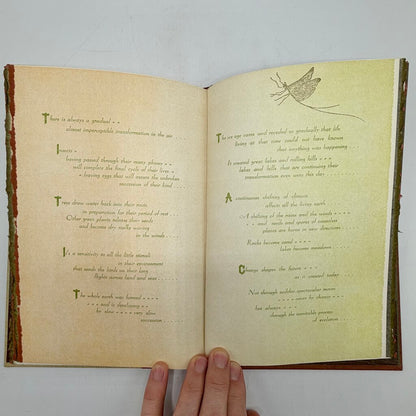 There is always a gradual - -
almost imperceptible transformation in the air . . .
Insects -
having passed through their many phases - -
will complete the final cycle of their lives -
- leaving eggs that will insure the unbroken
succession of their kind . . .
Trees draw water back into their roots
in preparation for their period of rest . . .
Other green plants release their seeds
and become dry stalks waving
in the winds . . .
It's a sensitivity to all the little stimuli
in their environment
that sends the birds on their long
flights across land and seas . . .
The whole earth was formed - - - -
- - - and is developing - -
by slow - - - very slow
succession . . .
The ice age came and receded so gradually that life
living at that time could not have known
that anything was happening . . .
It created great lakes and rolling hills - - -
lakes and hills that are continuing their
transformation even unto this day . . .
A continuous shifting of climate
affects all the living earth . . .
A shifting of the rains and the winds - - - -
- - and seeds and spores of countless
plants are borne in new directions . . .
Rocks become sand - - - -
lakes become meadows . . .
Change shapes the future - - -
as it created today . . .
Not through sudden spectacular moves
- - - - - or by chance - - -
but always - - -
through the inevitable process
of evolution . . .